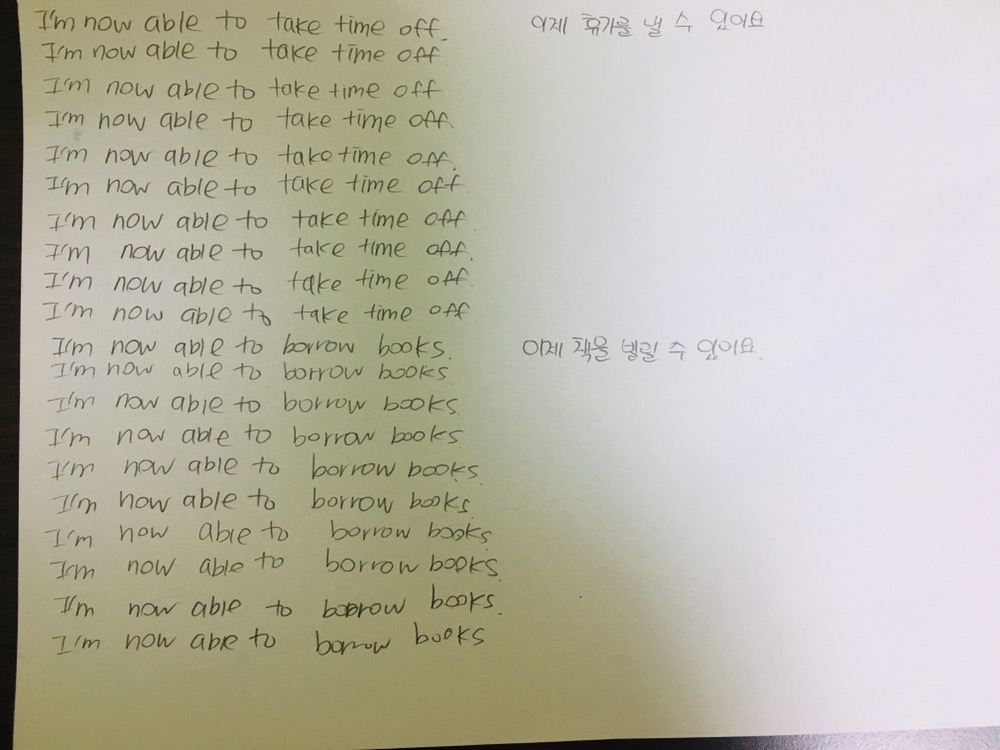 I'm now able to take time off. 이제 휴가를 낼 수 있어요
I'm now able to take time off
I'm now able to take time off
I'm now able to take time off.
I'm now able to take time off.
I'm now able to take time off
I'm now able to take time off
I'm now able to take time off.
I'm now able to take time off
I'm now able to take time off
I'm now able to borrow books. 이제 책을 빌릴 수 있어요.
I'm now able to borrow books
I'm now able to borrow books.
I'm now able to borrow books
I'm now able to borrow books.
I'm now able to borrow books.
I'm now able to borrow books.
I'm now able to borrow books.
I'm now able to borrow books.
I'm now able to borrow books